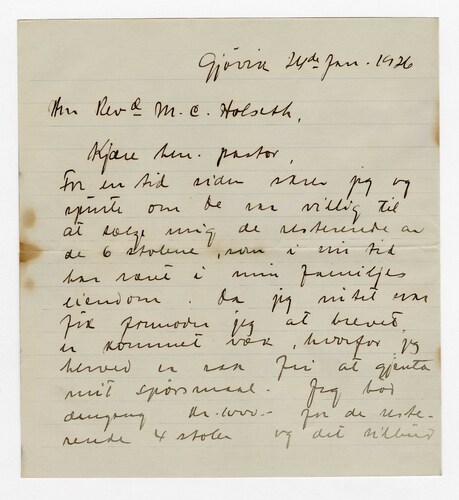 Gjövik 24de Jan. 1926
Hr. Revd M. C. Holseth,
Kjære herr. pastor,
For en tid siden skrev jeg og
spurte om De var villig til
at sælge mig de resterende av
de 6 stolene, som i sin tid
har været i min familjes
eiendom. Da jeg intet svar
fik formoder jeg at brevet
er kommet væk, hvorfor jeg
herved er saa fri at gjenta
mit spørsmaal. Jeg bød
dengang kr. 1000.- for de reste-
rende 4 stoler og det tilbud